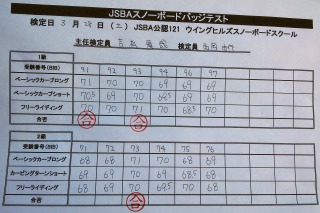 JSBAスノーボードバッジテスト
検定日 3 月 28 日 (土) JSBA公認121 ウイングヒルズスノーボードスクール
主任検定員 検定員
1級
受験番号(BIB) 91 92 93 94 95 96 97
ベーシックカーブロング 71 70 70 69 69 70 69
ベーシックカーブショート 70.5 69 70 69 68.5 69
フリーライディング 70 70 71 70 68.5 70
合否 合 合
2級
受験番号(BIB) 71 72 73 74 75 76
ベーシックカーブロング 68 68 71 70 68 69
カービングターンショート 69 70 69 68.5 68
フリーライディング 68 69 70 69.5 70 68
合否 合